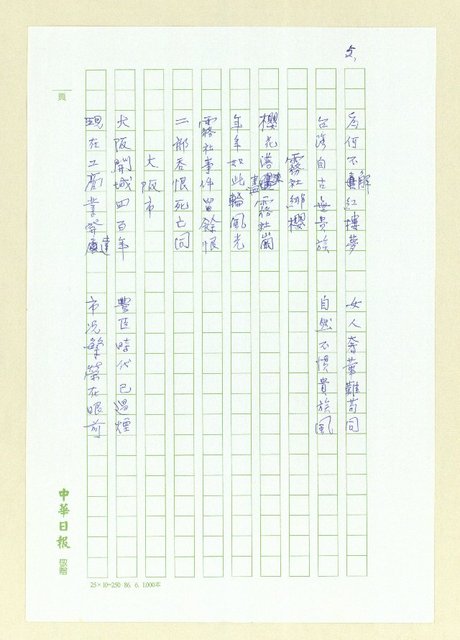 5,
為何不解紅樓夢　女人奢華難苟同
台灣自古無貴族　自然不慣貴族風
霧社緋櫻
櫻花滿霧社崗
年年如此輪風光
霧社事件留餘恨
二郎吞恨死亡同
大阪市
大阪開城四百年　豐臣時代已過煙
現在工商業發達　市況繁榮在眼前
頁
中華日報 敬贈
25×10=250 86. 6. 1000本